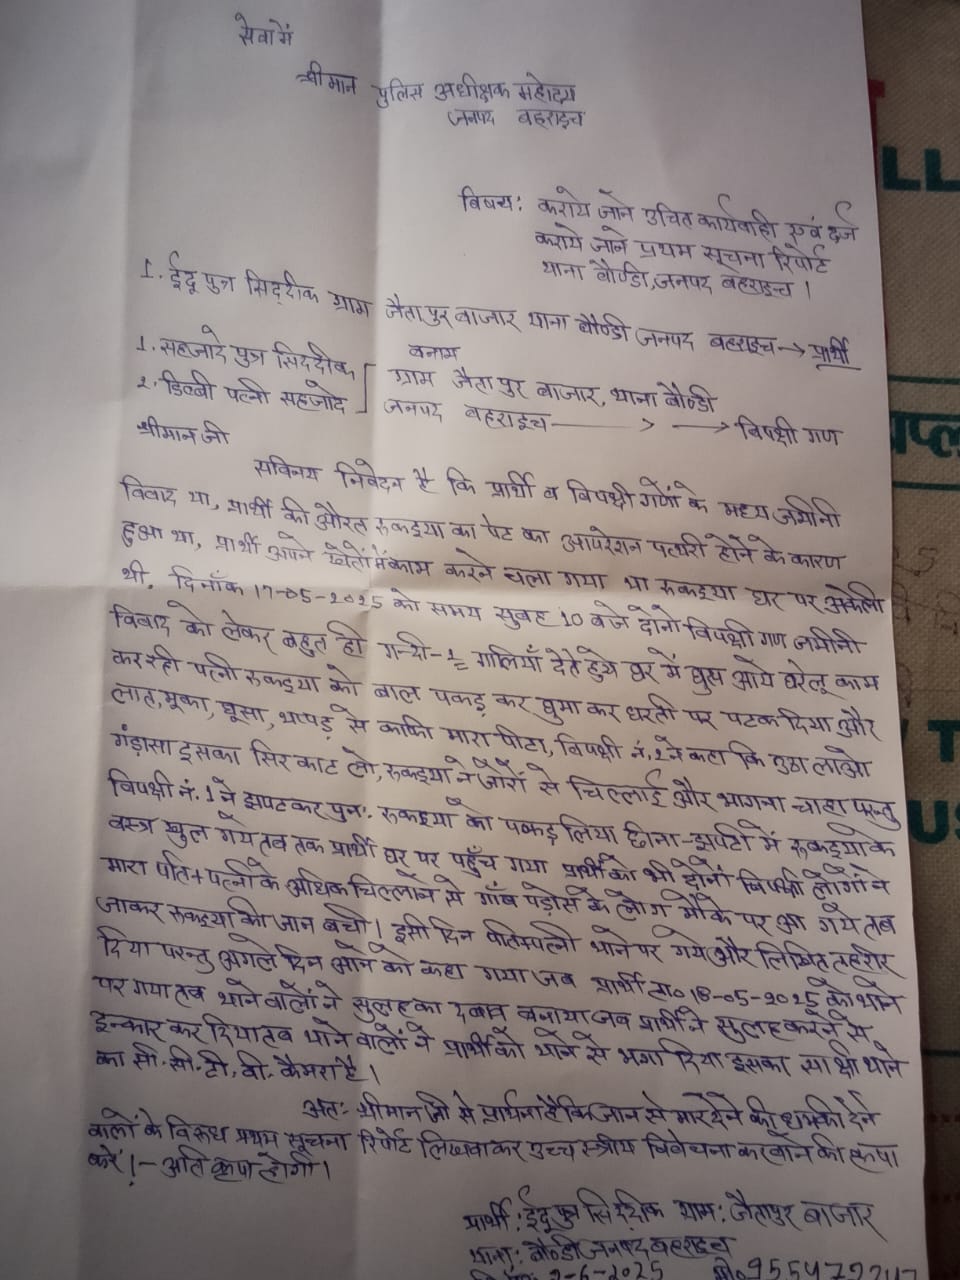 सेवा में
श्रीमान पुलिस अधीक्षक महोदय
जनपद बहराइच
विषय: कराये जाने उचित कार्यवाही एवं दर्ज
कराये जाने प्रथम सूचना रिपोर्ट
थाना बौण्डी, जनपद बहराइच।
1. ईदू पुत्र सिद्दीक ग्राम जैतापुर बाजार थाना बौण्डी जनपद बहराइच → प्रार्थी
बनाम
1. सहजादे पुत्र सिददीक
2. डिल्बी पत्नी सहजादे
ग्राम जैतापुर बाजार, थाना बौण्डी
जनपद बहराइच → → विपक्षी गण
श्रीमान जी
सविनय निवेदन है कि प्रार्थी व विपक्षी गणों के मध्य जमीनी
विवाद था, प्रार्थी की औरत रुकइया का पेट का आपरेशन पत्थरी होने के कारण
हुआ था, प्रार्थी अपने खेतों में काम करने चला गया था रुकइया घर पर अकेली
थी. दिनाँक 17-05-2025 को समय सुबह 10 बजे दोनो विपक्षी गण जमीनी
विवाद को लेकर बहुत ही गन्दी-2 गालियाँ देते हुये घर में घुस आये घरेलू काम
कर रही पत्नी रुकइया को बाल पकड़ कर घुमा कर धरती पर पटक दिया और
लात, मूका, घूसा, थप्पड़ से काफी मारा पीटा, विपक्षी नं. 2 ने कहा कि उठा लाओ
गंड़ासा इसका सिर काट लो, रुकइया ने जोरों से चिल्लाई और भागना चाहा परन्तु
विपक्षी नं. 1 ने झपटकर पुन: रुकइया को पकड़ लिया छीना-झपटी में रुकइया के
वस्त्र खुल गये तब तक प्रार्थी घर पर पहुँच गया प्रार्थी को भी दोनों विपक्षी लोगों ने
मारा पति+पत्नी के अधिक चिल्लाने से गाँव पड़ोस के लोग मौके पर आ गये तब
जाकर रुकइया की जान बची। इसी दिन पति+पत्नी थाने पर गये और लिखित तहरीर
दिया परन्तु अगले दिन आने को कहा गया जब प्रार्थी ता० 18-05-2025 को थाने
पर गया तब थाने वालों ने सुलह का दबाव बनाया जब प्रार्थी ने सुलह करने से
इन्कार कर दिया तब थाने वालों ने प्रार्थी को थाने से भगा दिया इसका साक्षी थाने
का सी.सी.टी.वी. कैमरा है।
अत:- श्रीमान जी से प्रार्थना है कि जान से मार देने की धमकी देने
वालों के विरुध प्रथम सूचना रिपोर्ट लिखवाकर उच्च स्त्रीय विवेचना करवाने की कृपा
करें।- अति कृपा होगी।
प्रार्थी: ईदू पुत्र सिद्दीक ग्राम: जैतापुर बाजार
थाना: बौण्डी जनपद बहराइच
2-6-2025
LL
प्ल
T
US